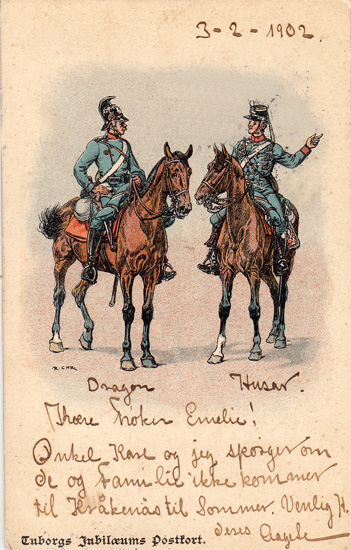 3-2-1902.
R. CHR.
Dragon Husar.
Kære Frøken Emelie!
Onkel Karl og jeg spørger om
De og Familie ikke kommer
til Kråkenäs til Sommer. Venlig H.
Deres Aagele
Tuborgs Jubilæums Postkort.